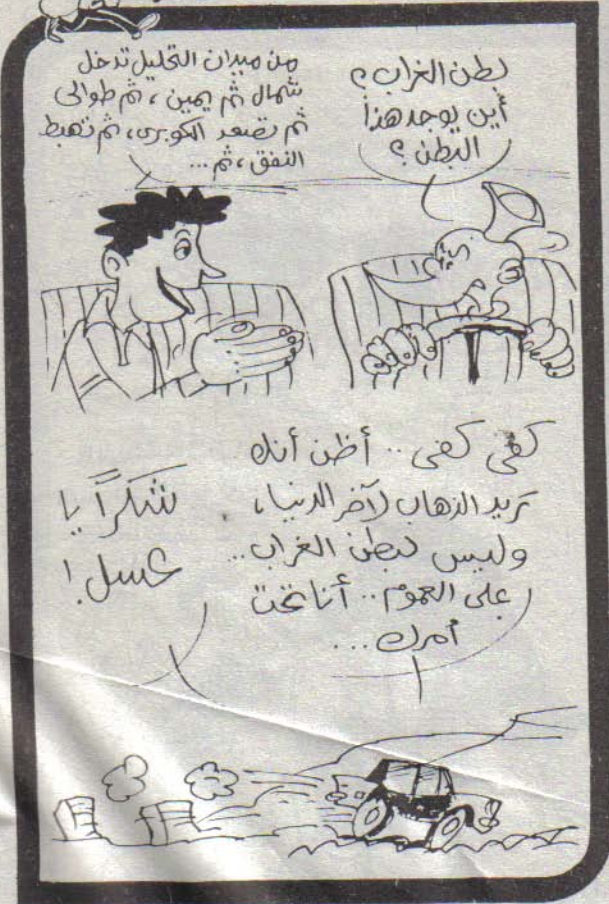 بطن الغراب؟
أين يوجد هذا
البطن؟
من ميدان التحليل تدخل
شمال ثم يمين، ثم طوالى
ثم تصعد الكوبرى، ثم تهبط
النفق، ثم...
كفى كفى.. أظن أنك
تريد الذهاب لآخر الدنيا،
وليس لبطن الغراب...
على العموم.. أنا تحت
أمرك...
شكراً يا
عسل!